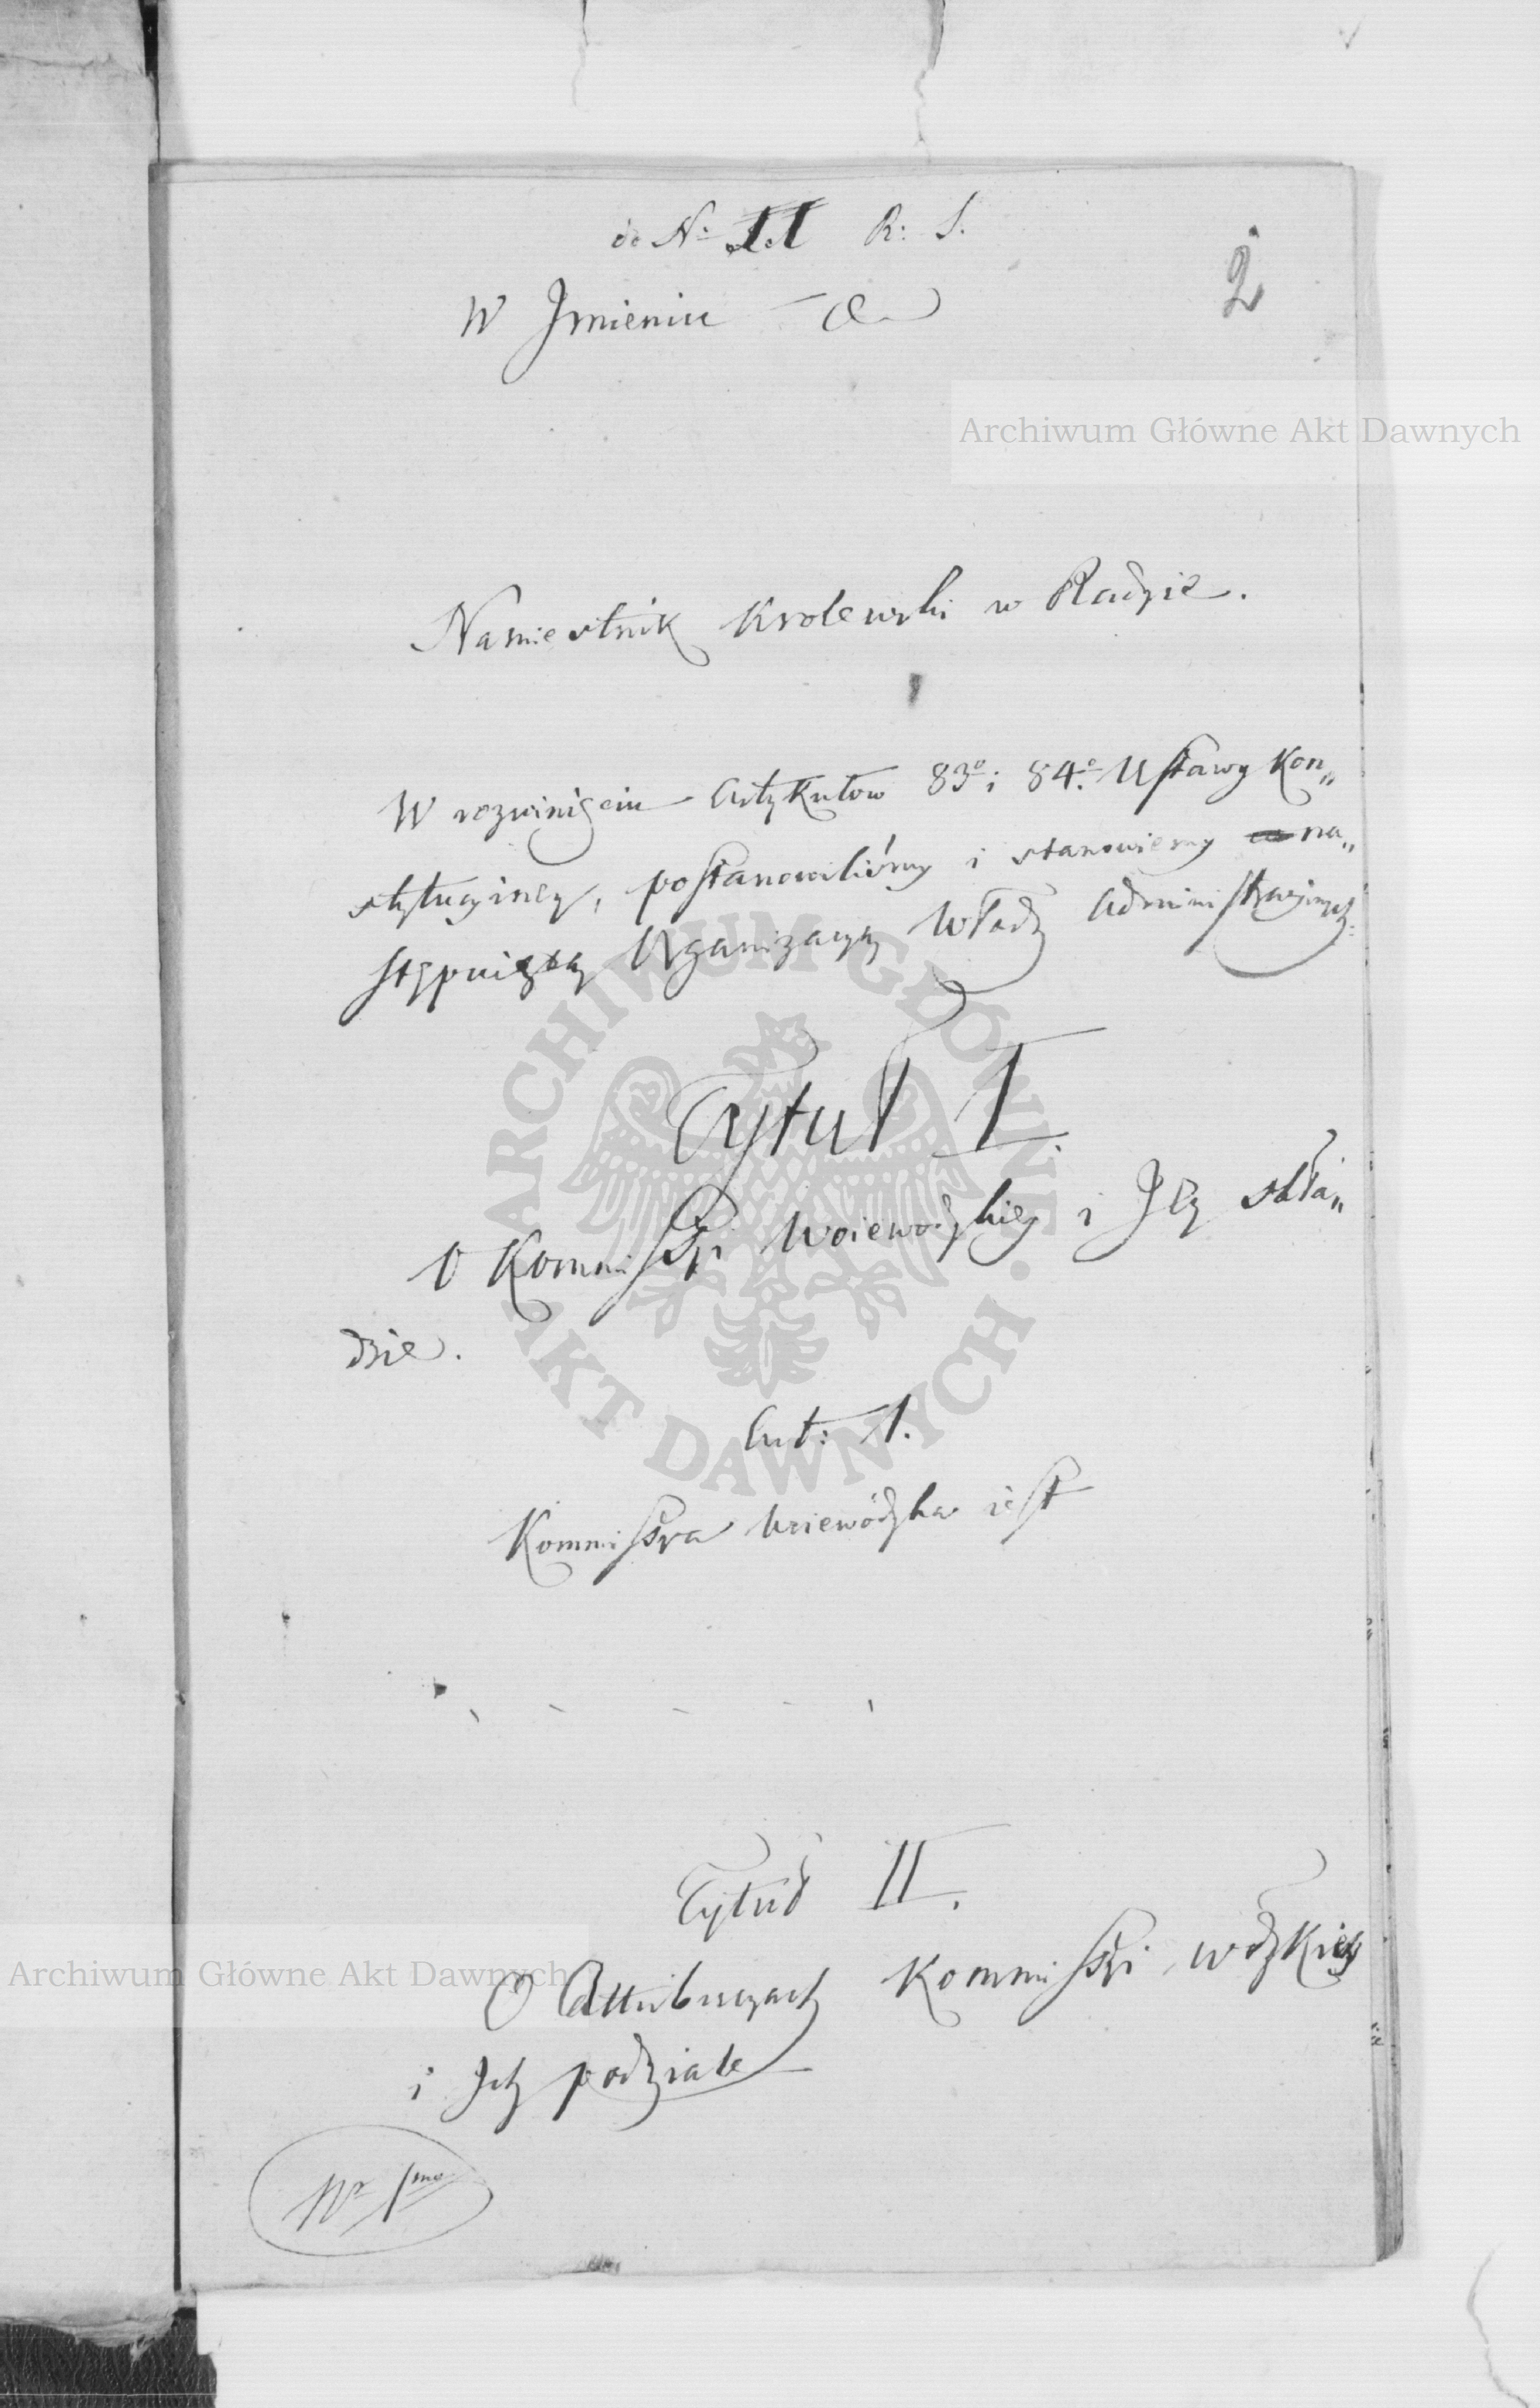 do N: II R: S.
2
W Jmieniu
Archiwum Główne Akt Dawnych
Namiestnik Krolewski w Radzie.
W rozwinięciu Artykułow 83º i 84º Ustawy Kon„
stytucyiney, postanowiliśmy i stanowiemy na„
stępuiącą Organizacyą Władz Administracyinych.
Tytuł I.
O Kommissyi Woiewodzkiey i Jey skła„
dzie.
Art: 1.
Kommissya Woiewódzka iest
Tytuł II.
O Attrybucyach Kommissyi Wdzkiey
Archiwum Główne Akt Dawnych
i Jch podziale
Nr 1mo
ARCHIWUM GŁÓWNE · AKT DAWNYCH ·